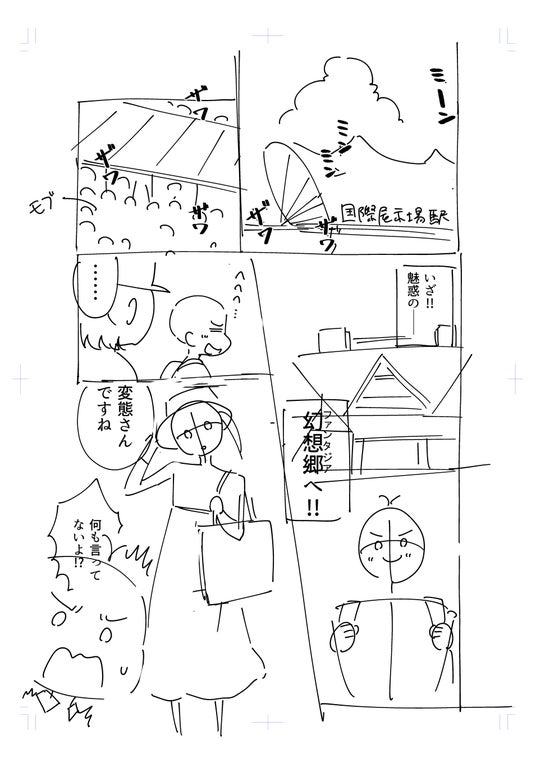 ミーン
ミン
ミン
国際展示場駅
ザワ
ザワ
ザワ
ザワ
ザワ
モブ
いざ!!
魅惑の――
幻想郷へ!!
ファンタジア
へへへ…
……
変態さん
ですね
何も言って
ないよ!?